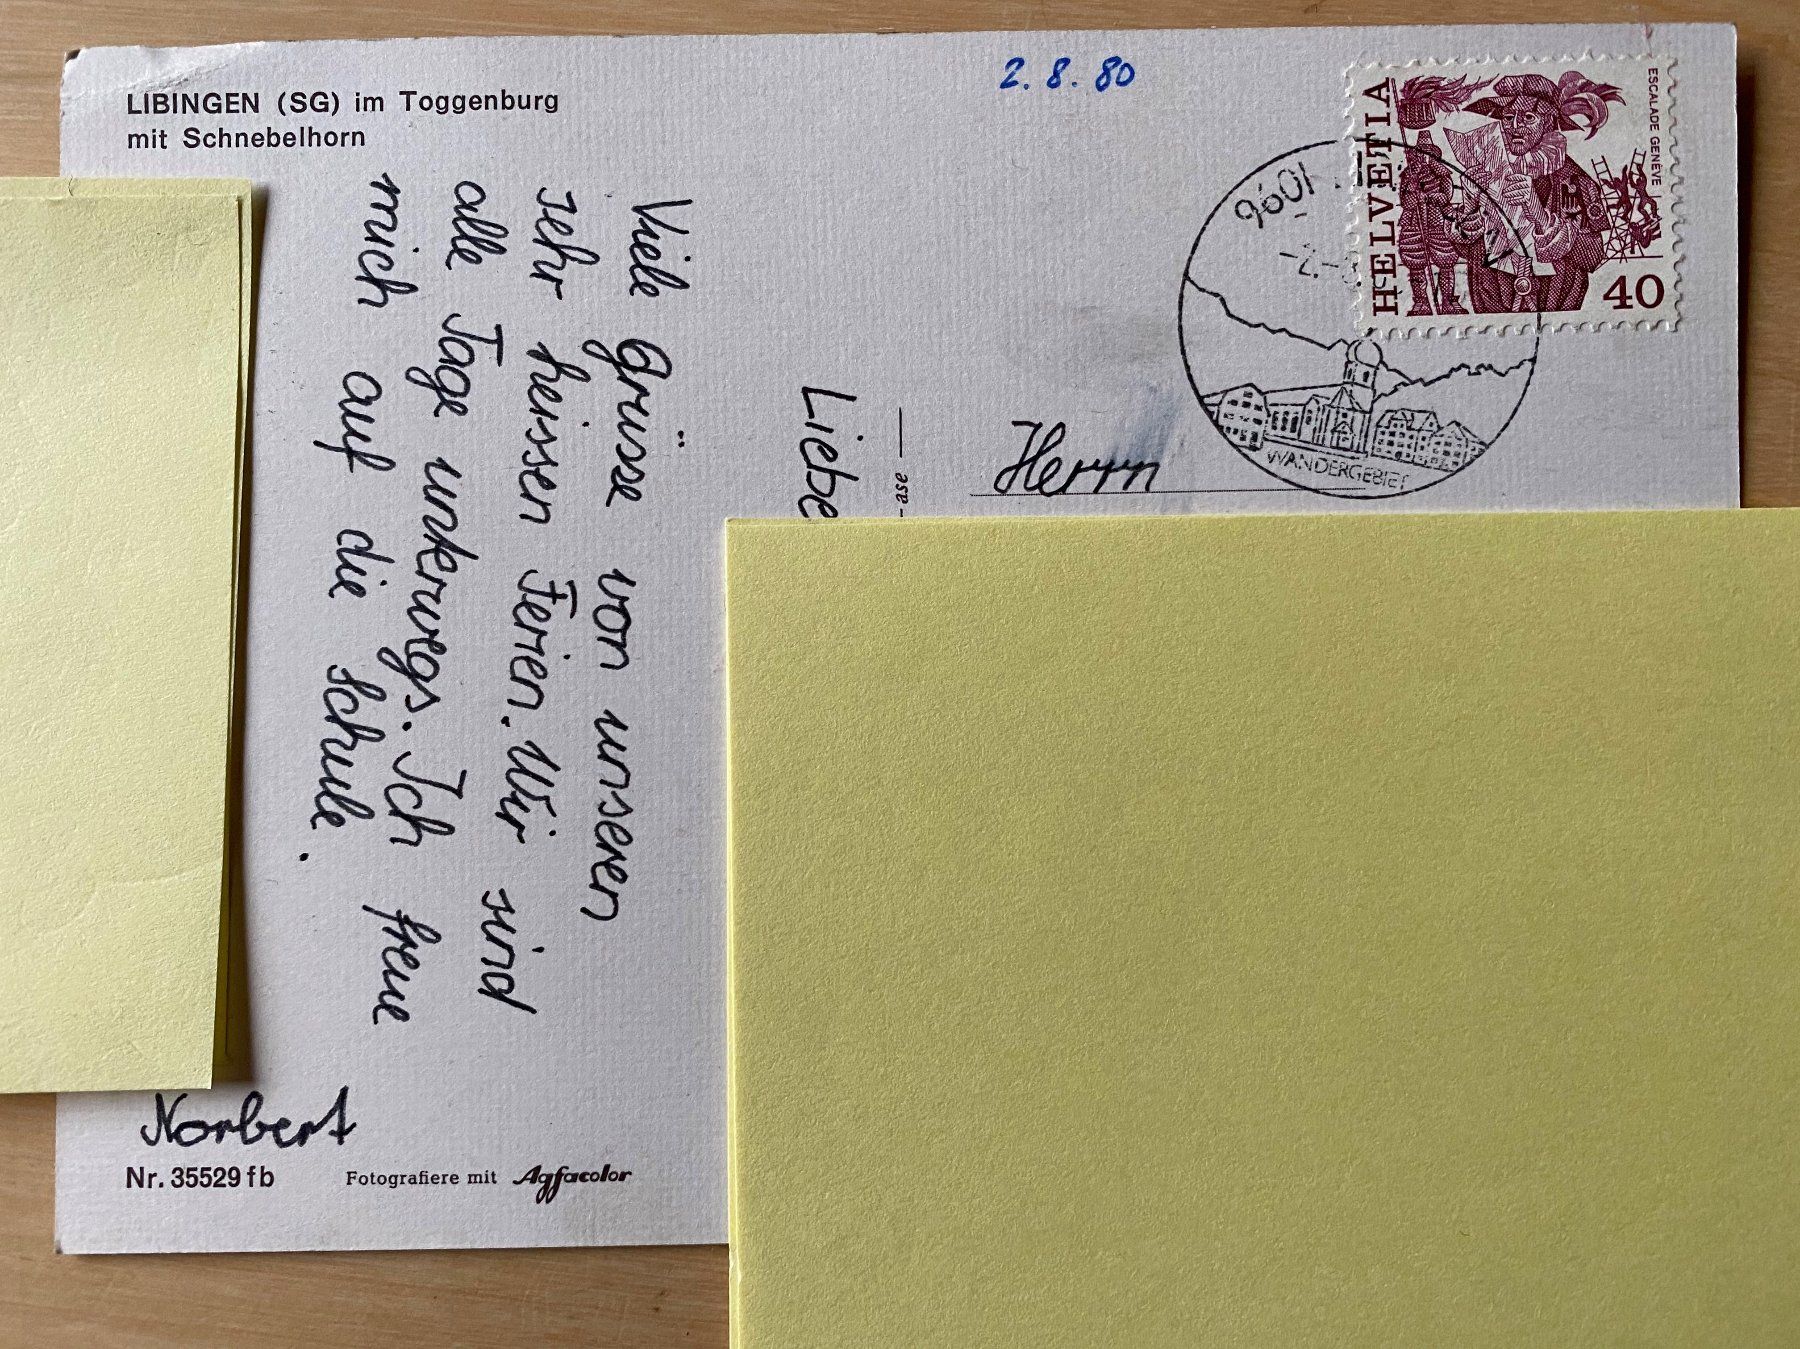 LIBINGEN (SG) im Toggenburg
mit Schnebelhorn
2. 8. 80
HELVETIA
ESCALADE GENÈVE
40
9601
WANDERGEBIET
Herrn
ase
Liebe
Viele Grüsse von unseren
sehr heissen Ferien. Wir sind
alle Tage unterwegs. Ich freue
mich auf die Schule.
Norbert
Nr. 35529 fb
Fotografiere mit Agfacolor